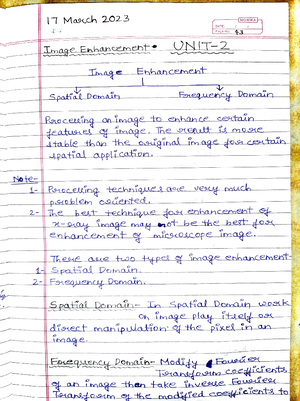 17 March 2023
Image Enhancement • UNIT-2
Image Enhancement
Spatial Domain Frequency Domain
Processing an image to enhance certain
features of image. The result is more
stable than the original image for certain
spatial application.
Note-
1- Processing techniques are very much
problem oriented.
2- The best technique for enhancement of
x-ray image may not be the best for
enhancement of microscope image.
There are two types of image enhancement-
1- Spatial Domain.
2- Frequency Domain.
Spatial Domain- In Spatial Domain work
on image play itself or
direct manipulation of the pixel in an
image.
Frequency Domain- Modify Fourier
Transform coefficients
of an image than take inverse Fourier
Transform of the modified coefficients to